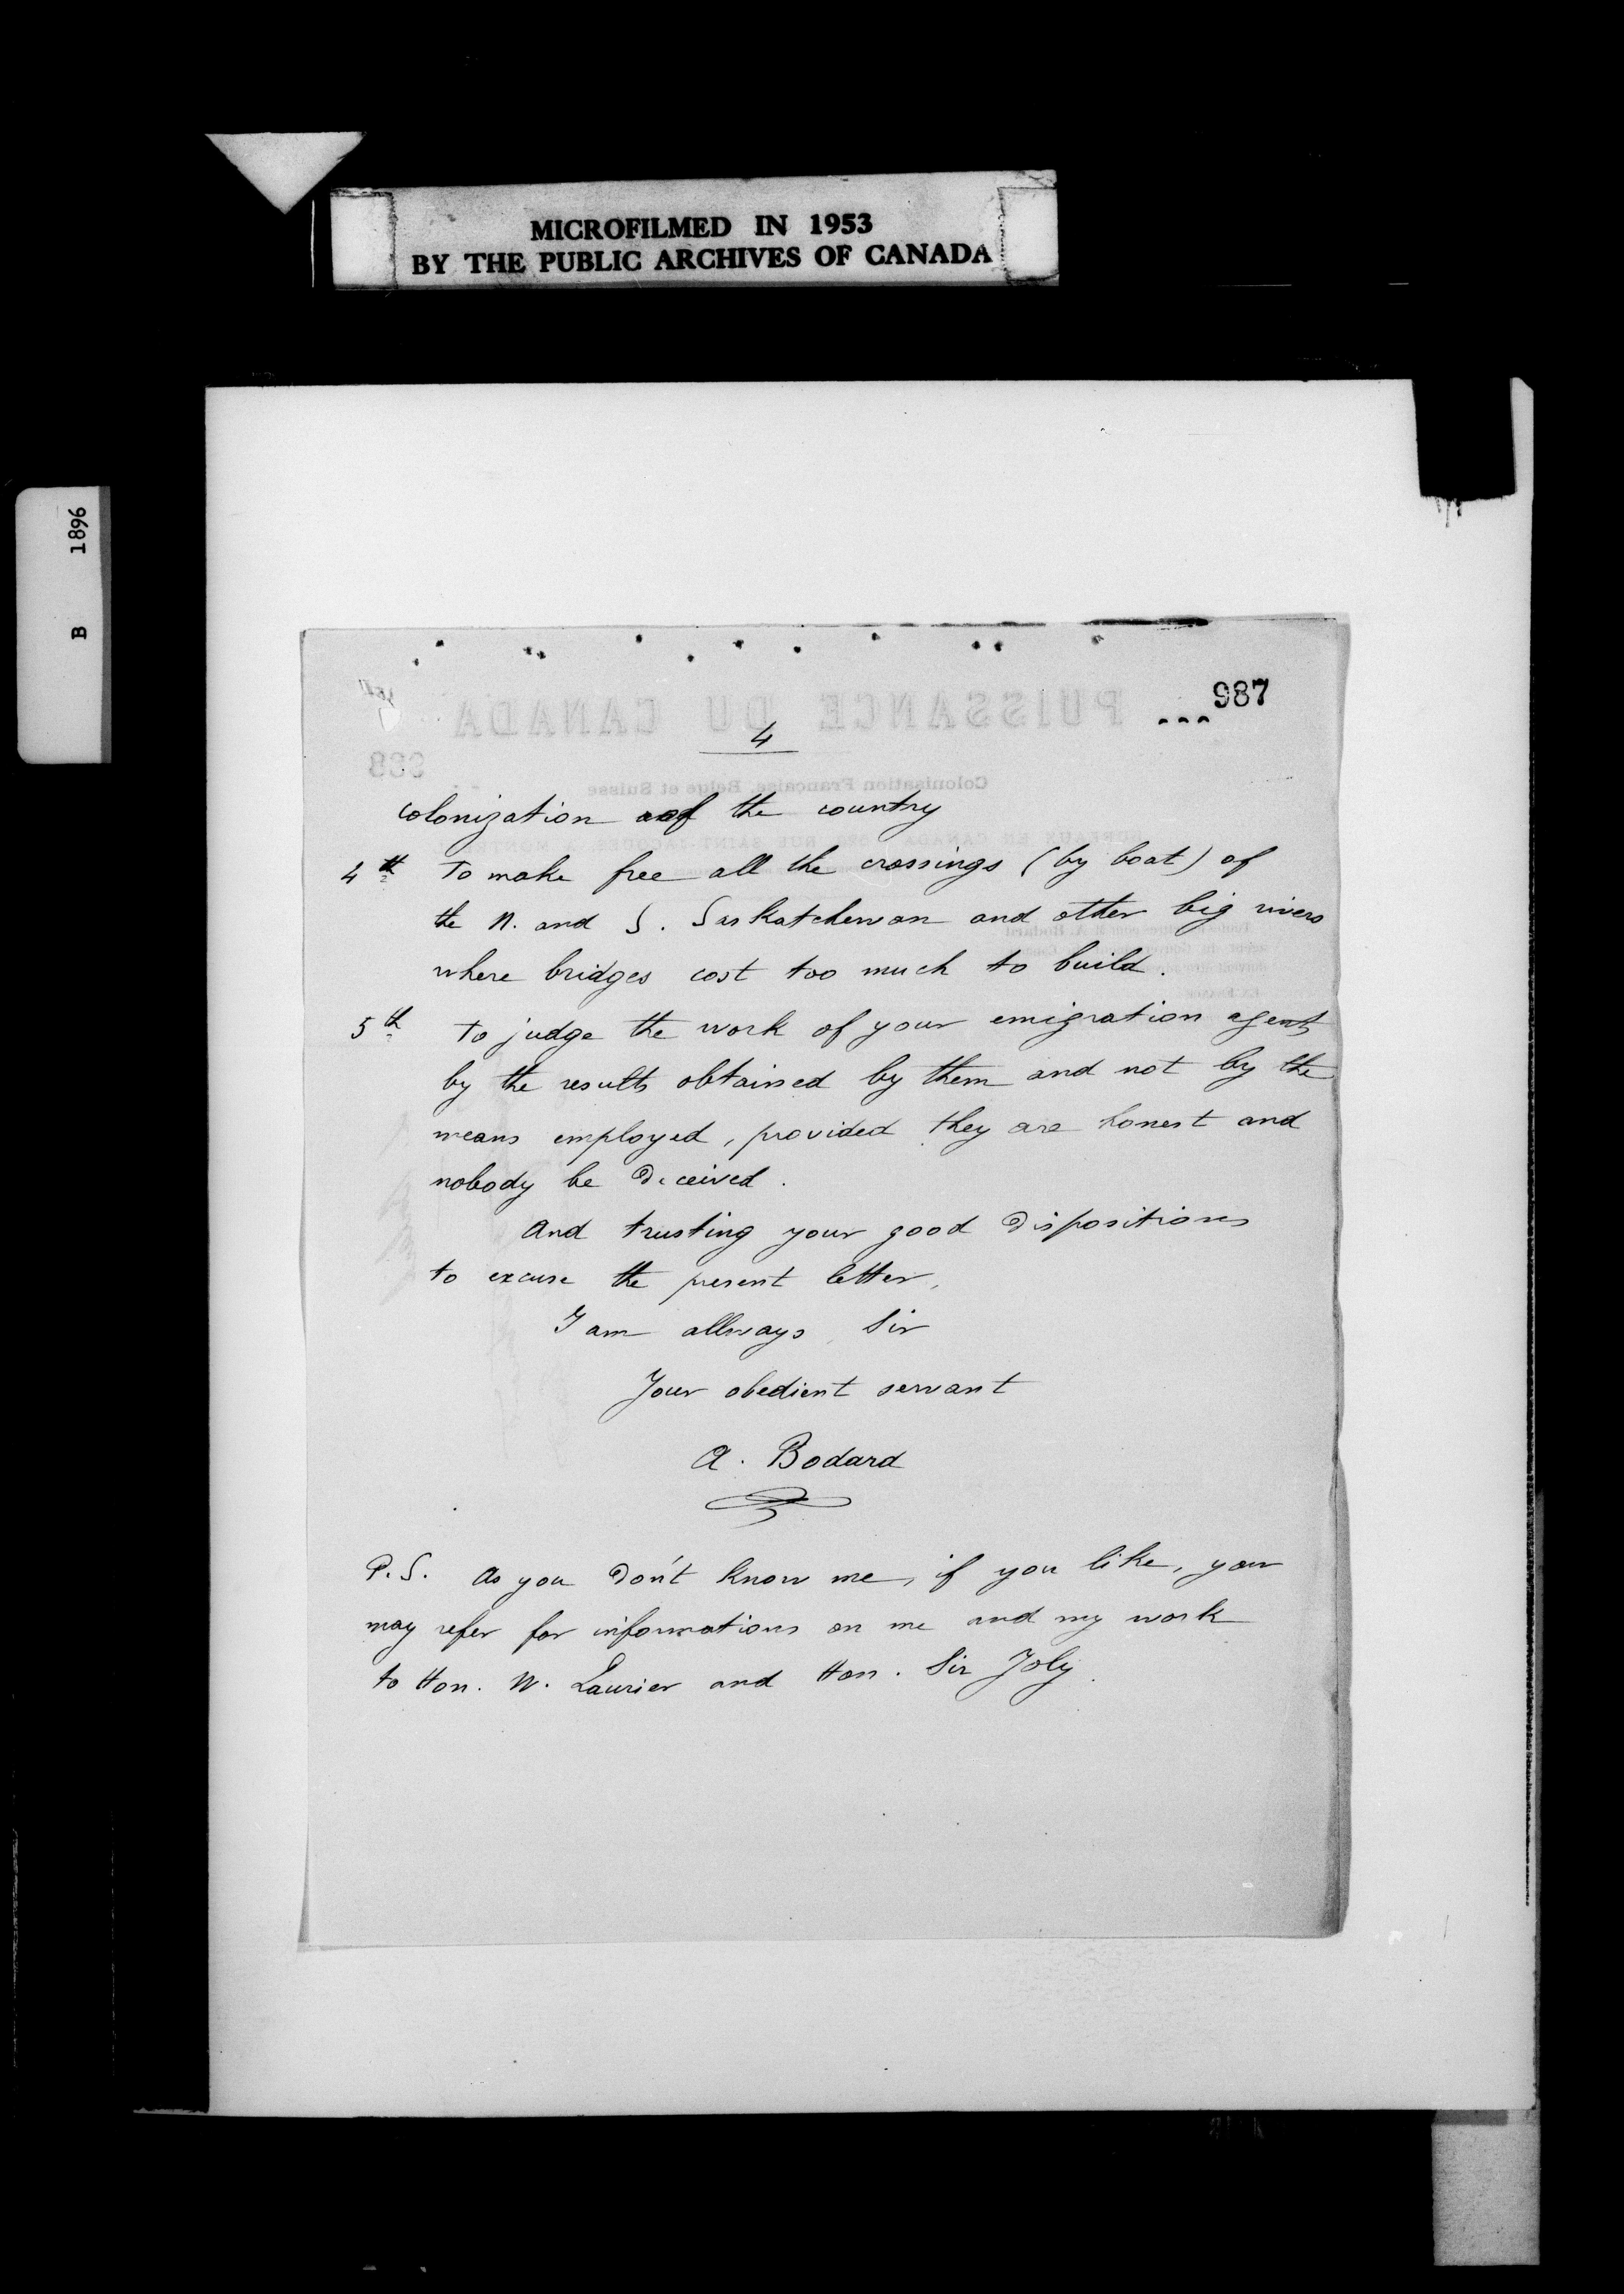 MICROFILMED IN 1953
BY THE PUBLIC ARCHIVES OF CANADA
B 1896
987
PUISSANCE DU CANADA
4
Colonisation Française, Belge et Suisse
colonization of the country
4th To make free all the crossings (by boat) of
the N. and S. Saskatchewan and other big rivers
where bridges cost too much to build.
5th To judge the work of your emigration agents
by the results obtained by them and not by the
means employed, provided they are honest and
nobody be deceived.
And trusting your good dispositions
to excuse the present letter,
I am allways Sir
Your obedient servant
A. Bodard
P.S. As you don't know me, if you like, you
may refer for informations on me and my work
to Hon. W. Laurier and Hon. Sir Joly.